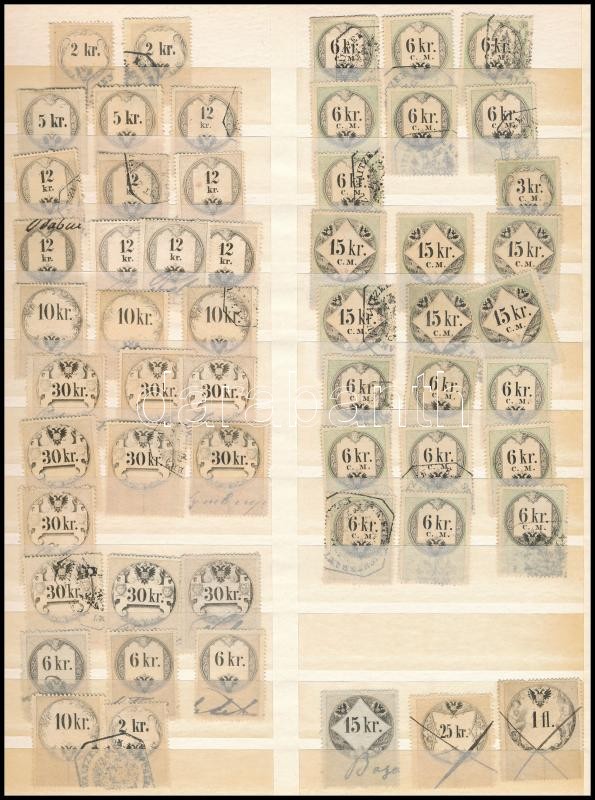 2 kr. 2 kr.
5 kr. 5 kr. 12 kr.
12 kr. 12 kr. 12 kr.
12 kr. 12 kr. 12 kr. 12 kr.
10 kr. 10 kr. 10 kr.
30 kr. 30 kr. 30 kr.
30 kr. 30 kr. 30 kr.
30 kr.
30 kr. 30 kr. 30 kr.
6 kr. 6 kr. 6 kr.
10 kr. 2 kr.
6 kr. C. M. 6 kr. C. M. 6 kr. C. M.
6 kr. C. M. 6 kr. C. M. 6 kr. C. M.
6 kr. C. M. 3 kr. C. M.
15 kr. C. M. 15 kr. C. M. 15 kr. C. M.
15 kr. C. M. 15 kr. C. M. 15 kr. C. M.
6 kr. C. M. 6 kr. C. M. 6 kr. C. M.
6 kr. C. M. 6 kr. C. M. 6 kr. C. M.
6 kr. C. M. 6 kr. C. M. 6 kr. C. M.
15 kr. 25 kr. 1 fl.
darabanth